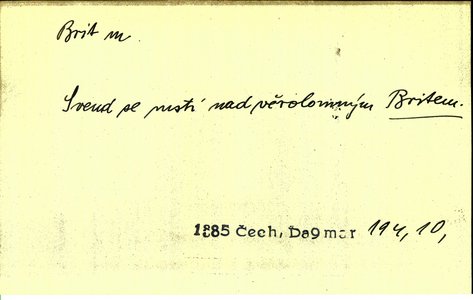 Brit m
Svend se mstí nad věrolomným Britem.
1885 Čech, Dagmar 194, 10,